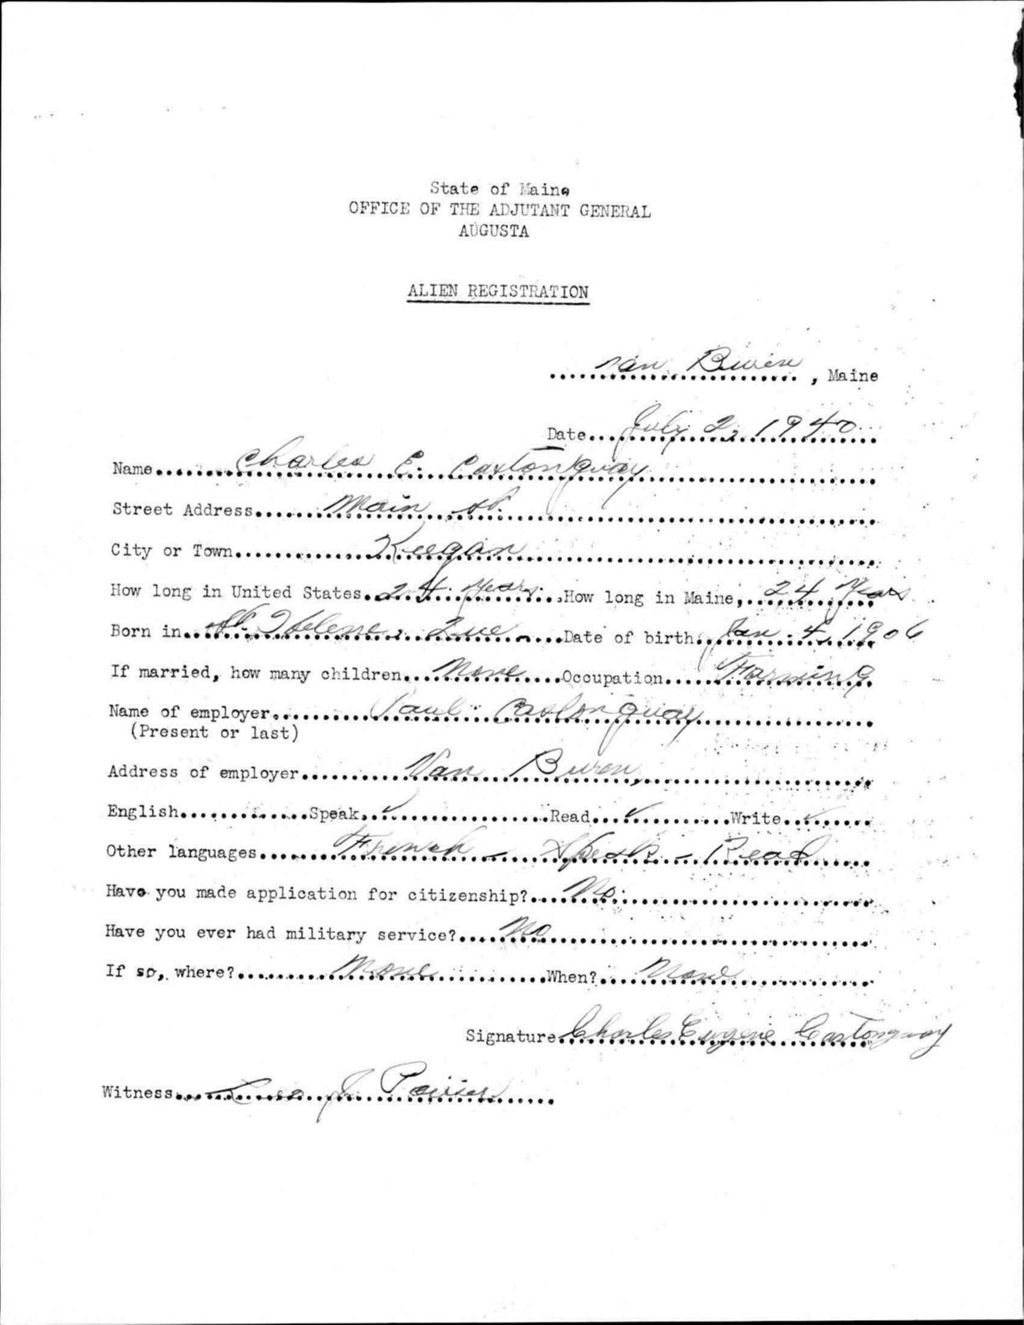 State of Maine
OFFICE OF THE ADJUTANT GENERAL
AUGUSTA
ALIEN REGISTRATION
Van Buren, Maine
Date July 2, 1940
Name Charles E. Castonguay
Street Address Main St.
City or Town Keegan
How long in United States 24 Years How long in Maine, 24 Years
Born in St. Helene, Que Date of birth Jan 4, 1906
If married, how many children None Occupation Farming
Name of employer Paul Castonguay
(Present or last)
Address of employer Van Buren,
English Speak ✓ Read ✓ Write ✓
Other languages French - Speak - Read
Have you made application for citizenship? No.
Have you ever had military service? No
If so, where? None When? None
Signature Charles Eugene Castonguay
Witness Leo J. Poirier